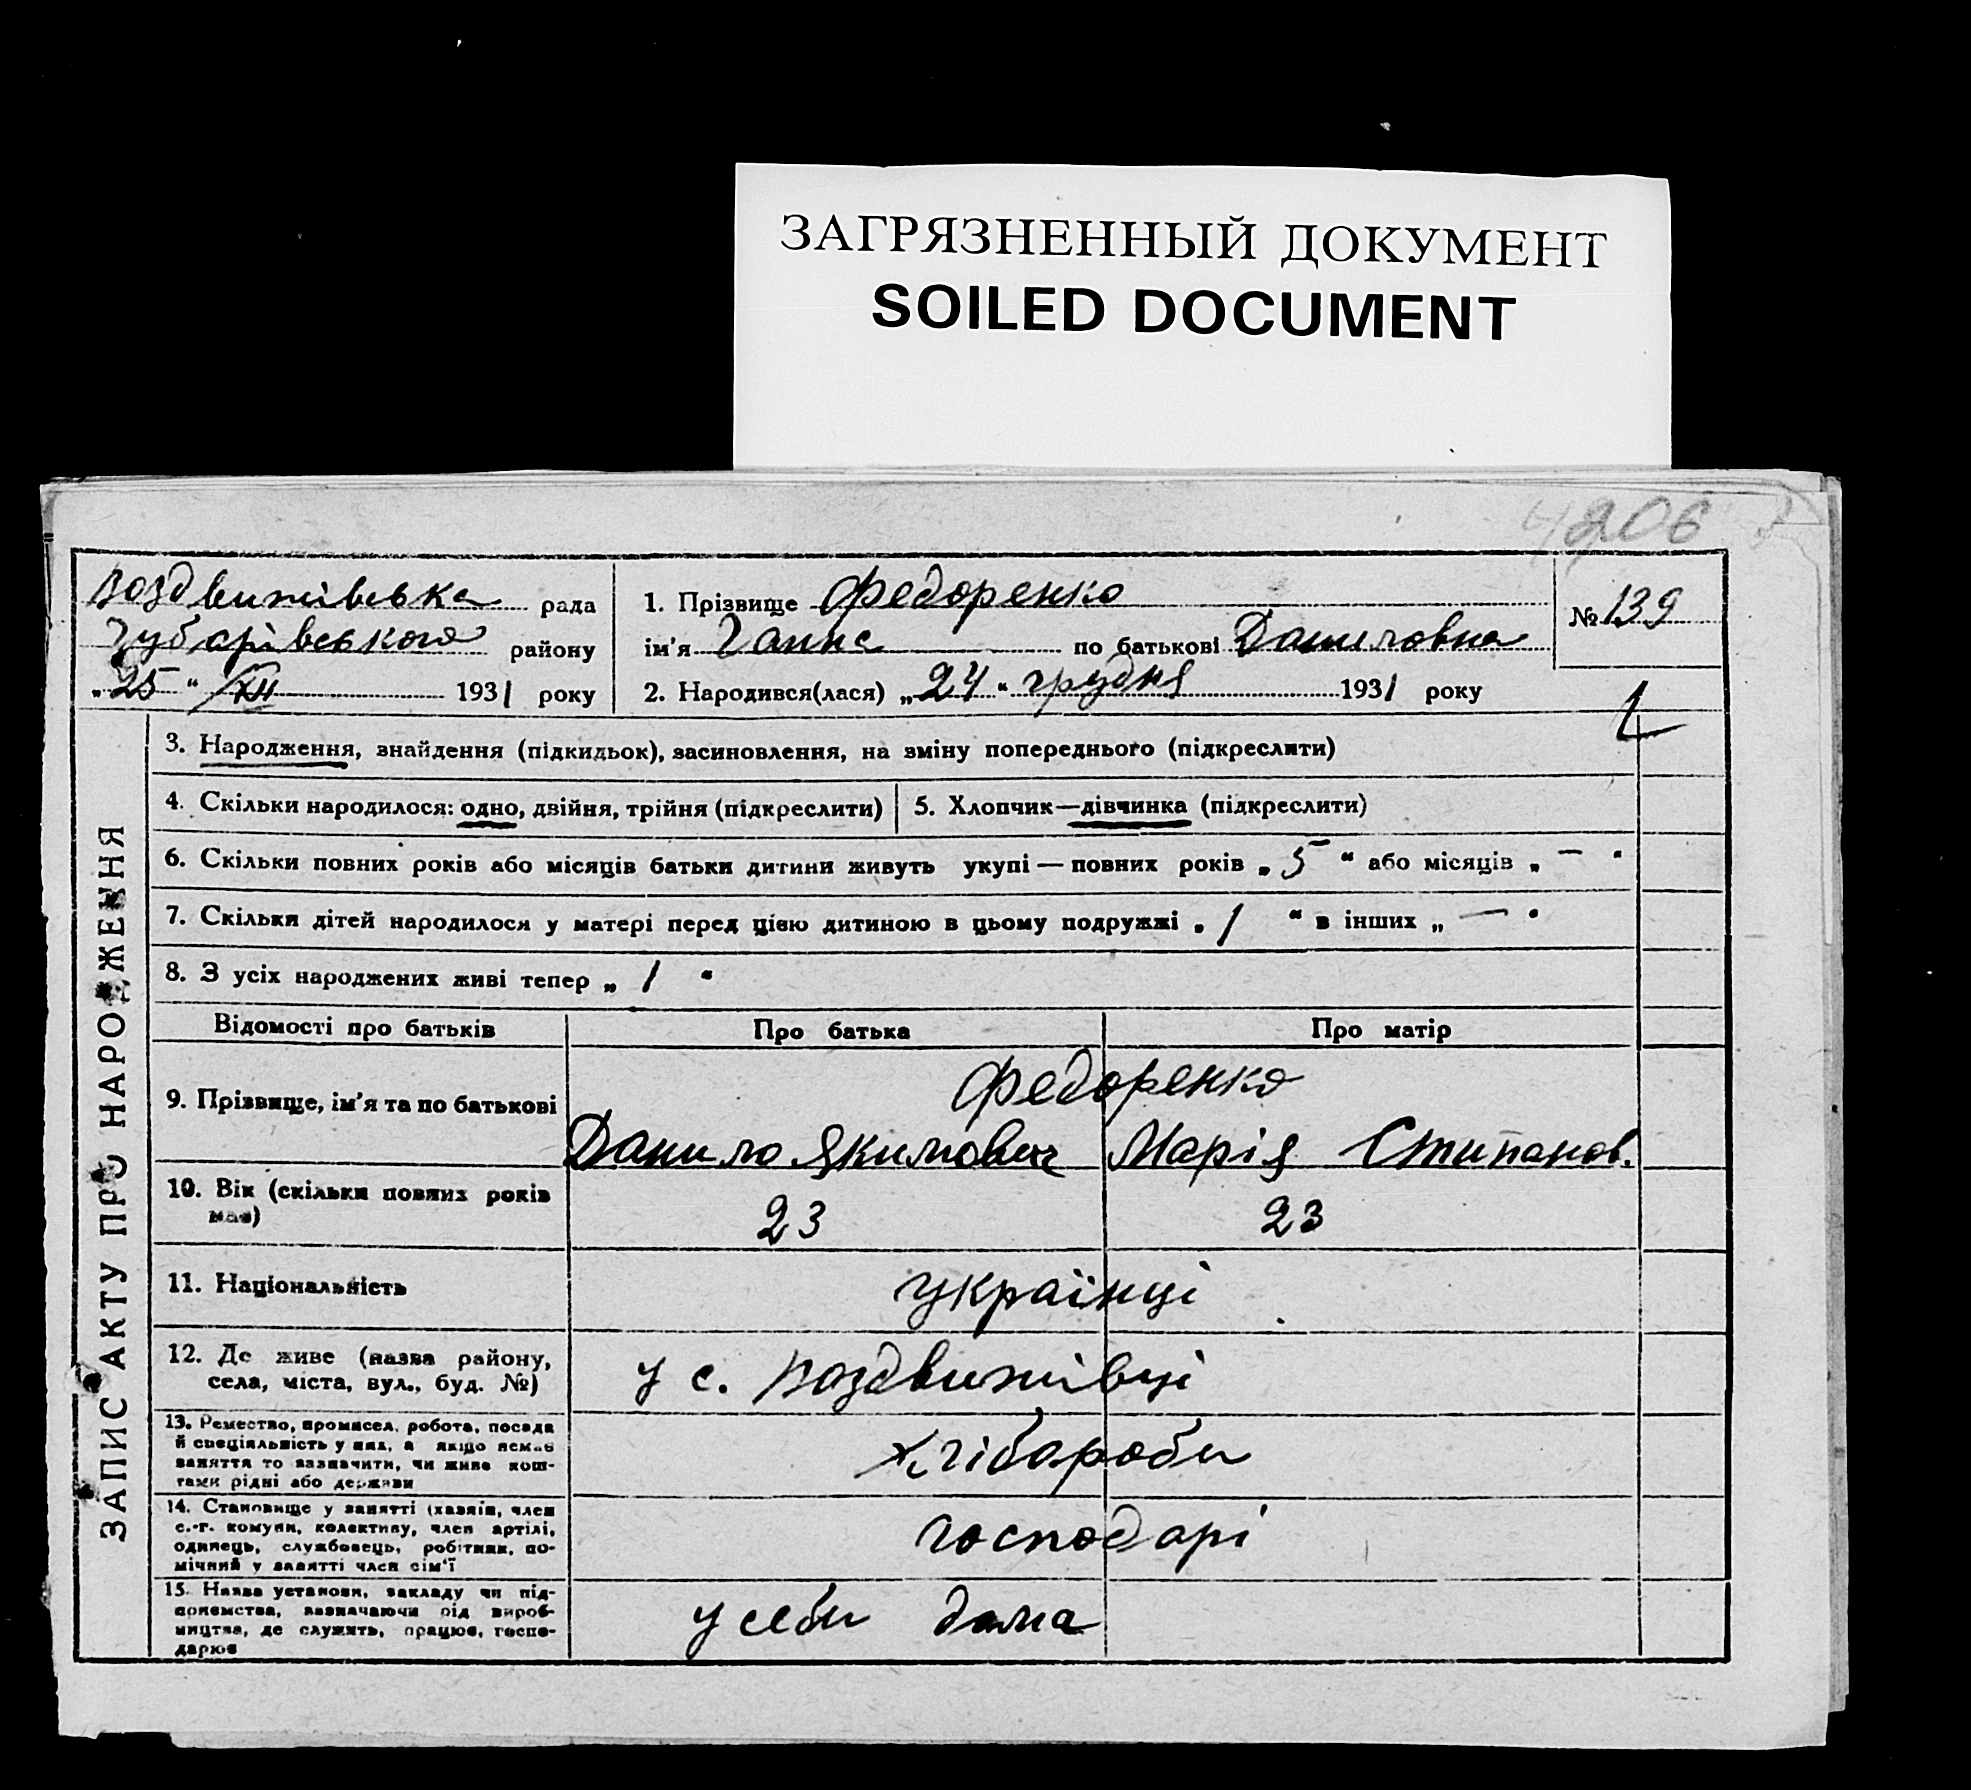 ЗАГРЯЗНЕННЫЙ ДОКУМЕНТ
SOILED DOCUMENT
4206
Воздвижівська рада
Чубарівського району
„25“ XII 1931 року
1. Прізвище Федоренко
ім'я Ганна по батькові Даниловна
2. Народився(лася) „24“ грудня 1931 року
№ 139
ЗАПИС АКТУ ПРО НАРОДЖЕННЯ
3. Народження, знайдення (підкидьок), засиновлення, на зміну попереднього (підкреслити)
4. Скільки народилося: одно, двійня, трійня (підкреслити)
5. Хлопчик—дівчинка (підкреслити)
6. Скільки повних років або місяців батьки дитини живуть укупі — повних років „5“ або місяців „—“
7. Скільки дітей народилося у матері перед цією дитиною в цьому подружжі „1“ в інших „—“
8. З усіх народжених живі тепер „1“
Відомості про батьків
Про батька
Про матір
9. Прізвище, ім'я та по батькові
Федоренко
Данило Якимович
Марія Стипанов.
10. Вік (скільки повних років
має)
23
23
11. Національність
українці
12. Де живе (назва району,
села, міста, вул., буд. №)
у с. Воздвижівці
13. Ремество, промисел, робота, посада
й спеціяльність у них, а якщо немає
заняття то зазначити, чи живе кош-
тами рідні або держави
хлібароби
14. Становище у занятті (хазяїн, член
с.-г. комуни, колективу, член артілі,
одинець, службовець, робітник, по-
мічний у занятті член сім'ї
господарі
15. Назва установи, закладу чи під-
приємства, зазначаючи рід вироб-
ництва, де служить, працює, госпо-
дарює
у себи дома